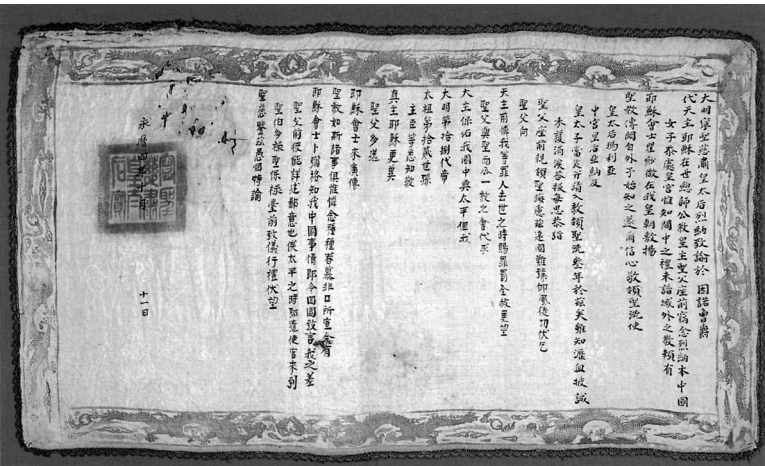 大明寧聖慈肅皇太后烈納致諭於 因諾曾爵
代天主耶穌在世總師公教皇主聖父座前竊念烈納本中國
女子忝處皇宮惟知閫中之禮未諳域外之教賴有
耶穌會士瞿紗微在我皇朝敷揚
聖教傳聞自外予始知之遂爾信心敬領聖洗使
皇太后瑪利亞
中宮皇后亞納及
皇太子當定並請入教領聖洗叁年於茲矣雖知瀝血披誠
未獲涓涘答報每思恭詣
聖父座前親領聖誨慮茲遠國難臻仰風徒切伏乞
聖父向
天主前憐我等罪人去世之時賜罪罰全赦更望
聖父與聖而公一教之會代求
天主保佑我國中興太平俾我
大明第拾捌代帝
太祖第拾貳世孫
主臣等悉知敬
真主耶穌更冀
聖父多送
耶穌會士來廣傳
聖教如斯諸事俱惟憐念種種眷慕非口所宣今有
耶穌會士卜彌格知我中國事情即令回國致言我之差
聖父前彼能詳述鄙意也俟太平之時即遣使官來到
聖伯多祿聖保祿臺前致儀行禮伏望
聖慈鑒茲愚悃特諭
永曆四年十月
十一日